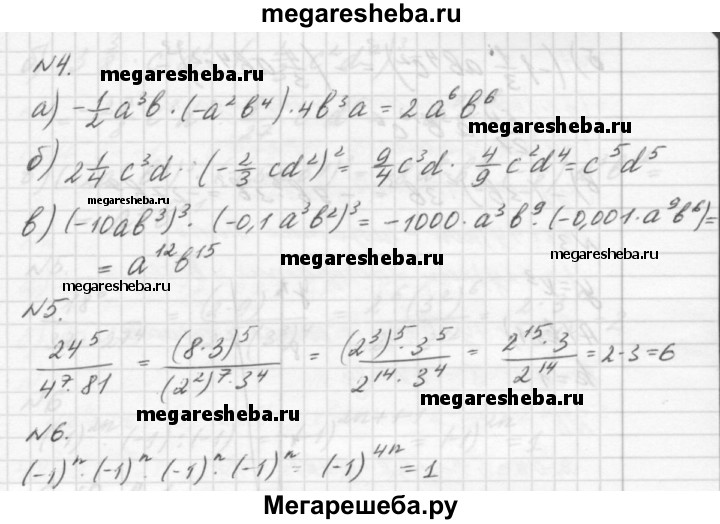 megaresheba.ru
№4.
megaresheba.ru
а) -1/2 a³b · (-a²b⁴) · 4b³a = 2a⁶b⁶
megaresheba.ru
б) 2 1/4 c³d · (-2/3 cd²)² = 9/4 c³d · 4/9 c²d⁴ = c⁵d⁵
megaresheba.ru
в) (-10ab³)³ · (-0,1a³b²)³ = -1000 · a³b⁹ · (-0,001 · a⁹b⁶) =
= a¹²b¹⁵
megaresheba.ru
megaresheba.ru
megaresheba.ru
№5.
24⁵/(4⁷ · 81) = (8·3)⁵/((2²)⁷ · 3⁴) = ((2³)⁵ · 3⁵)/(2¹⁴ · 3⁴) = (2¹⁵ · 3)/2¹⁴ = 2·3 = 6
megaresheba.ru
megaresheba.ru
№6.
(-1)ⁿ · (-1)ⁿ · (-1)ⁿ · (-1)ⁿ = (-1)⁴ⁿ = 1
Мегарешеба.ру